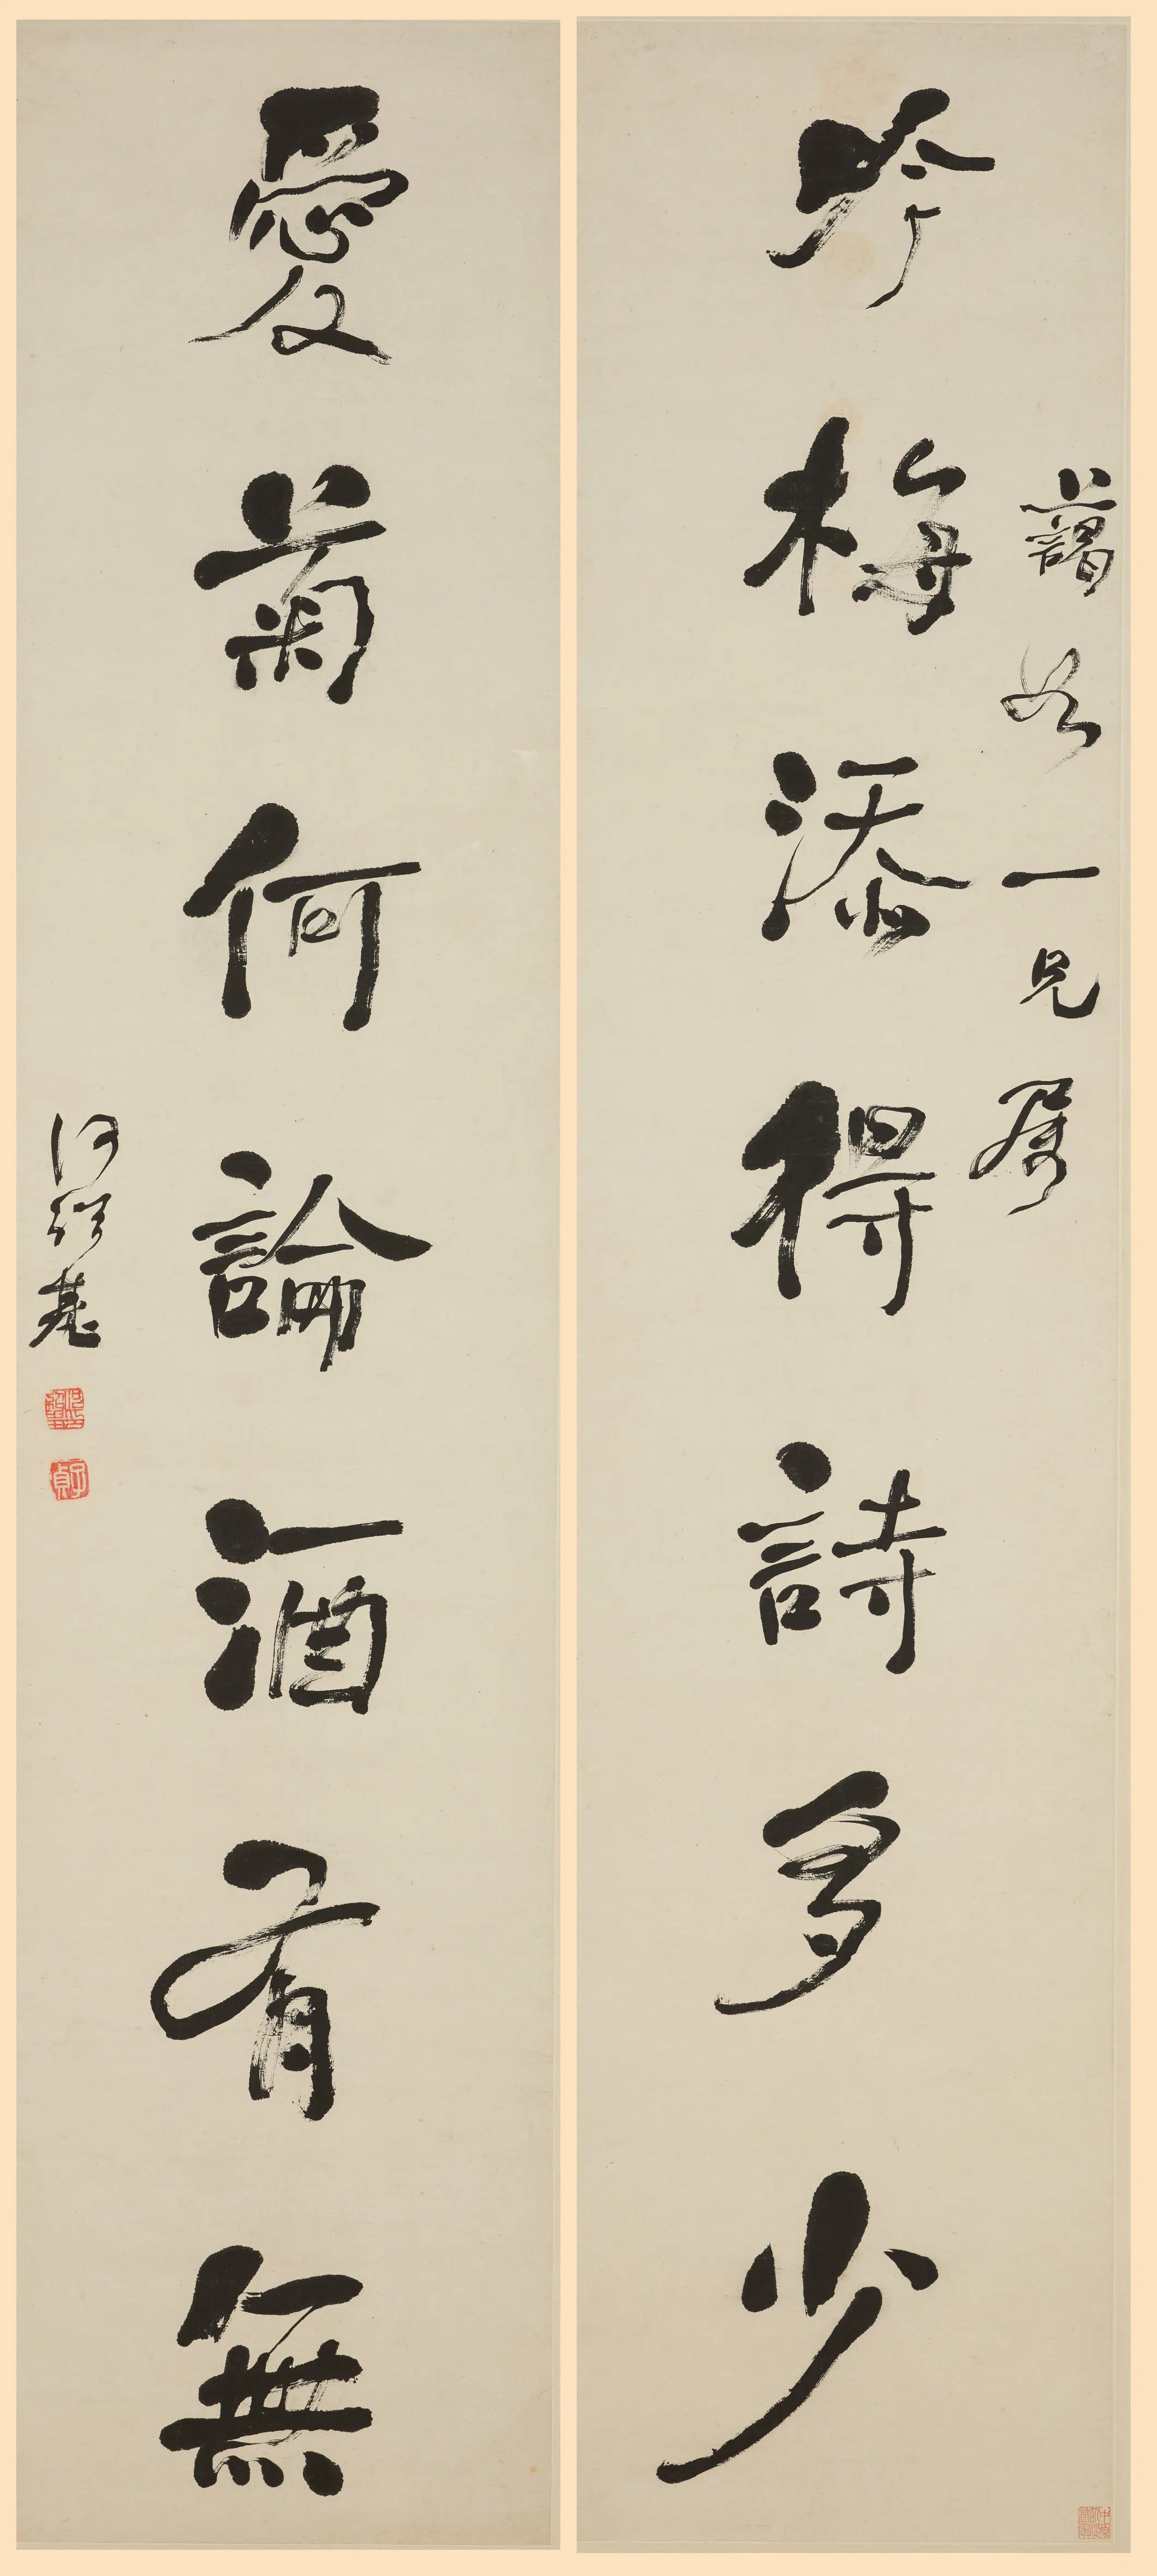 藹如一兄屬
吟梅添得詩多少
愛菊何論酒有無
何紹基
子貞